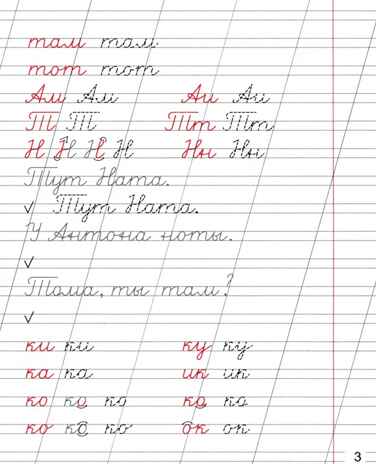 там там
тот тот
Ам Ам Аи Аи
Т Т Тт Тт
Н Н Н Н Н Нн Нн
Тут Ната.
✓ Тут Ната.
У Антона ноты.
✓
Тома, ты там?
✓
ки ки ку ку
ка ка ик ик
ко ко ко ка ка
ко ко ко ок ок
3